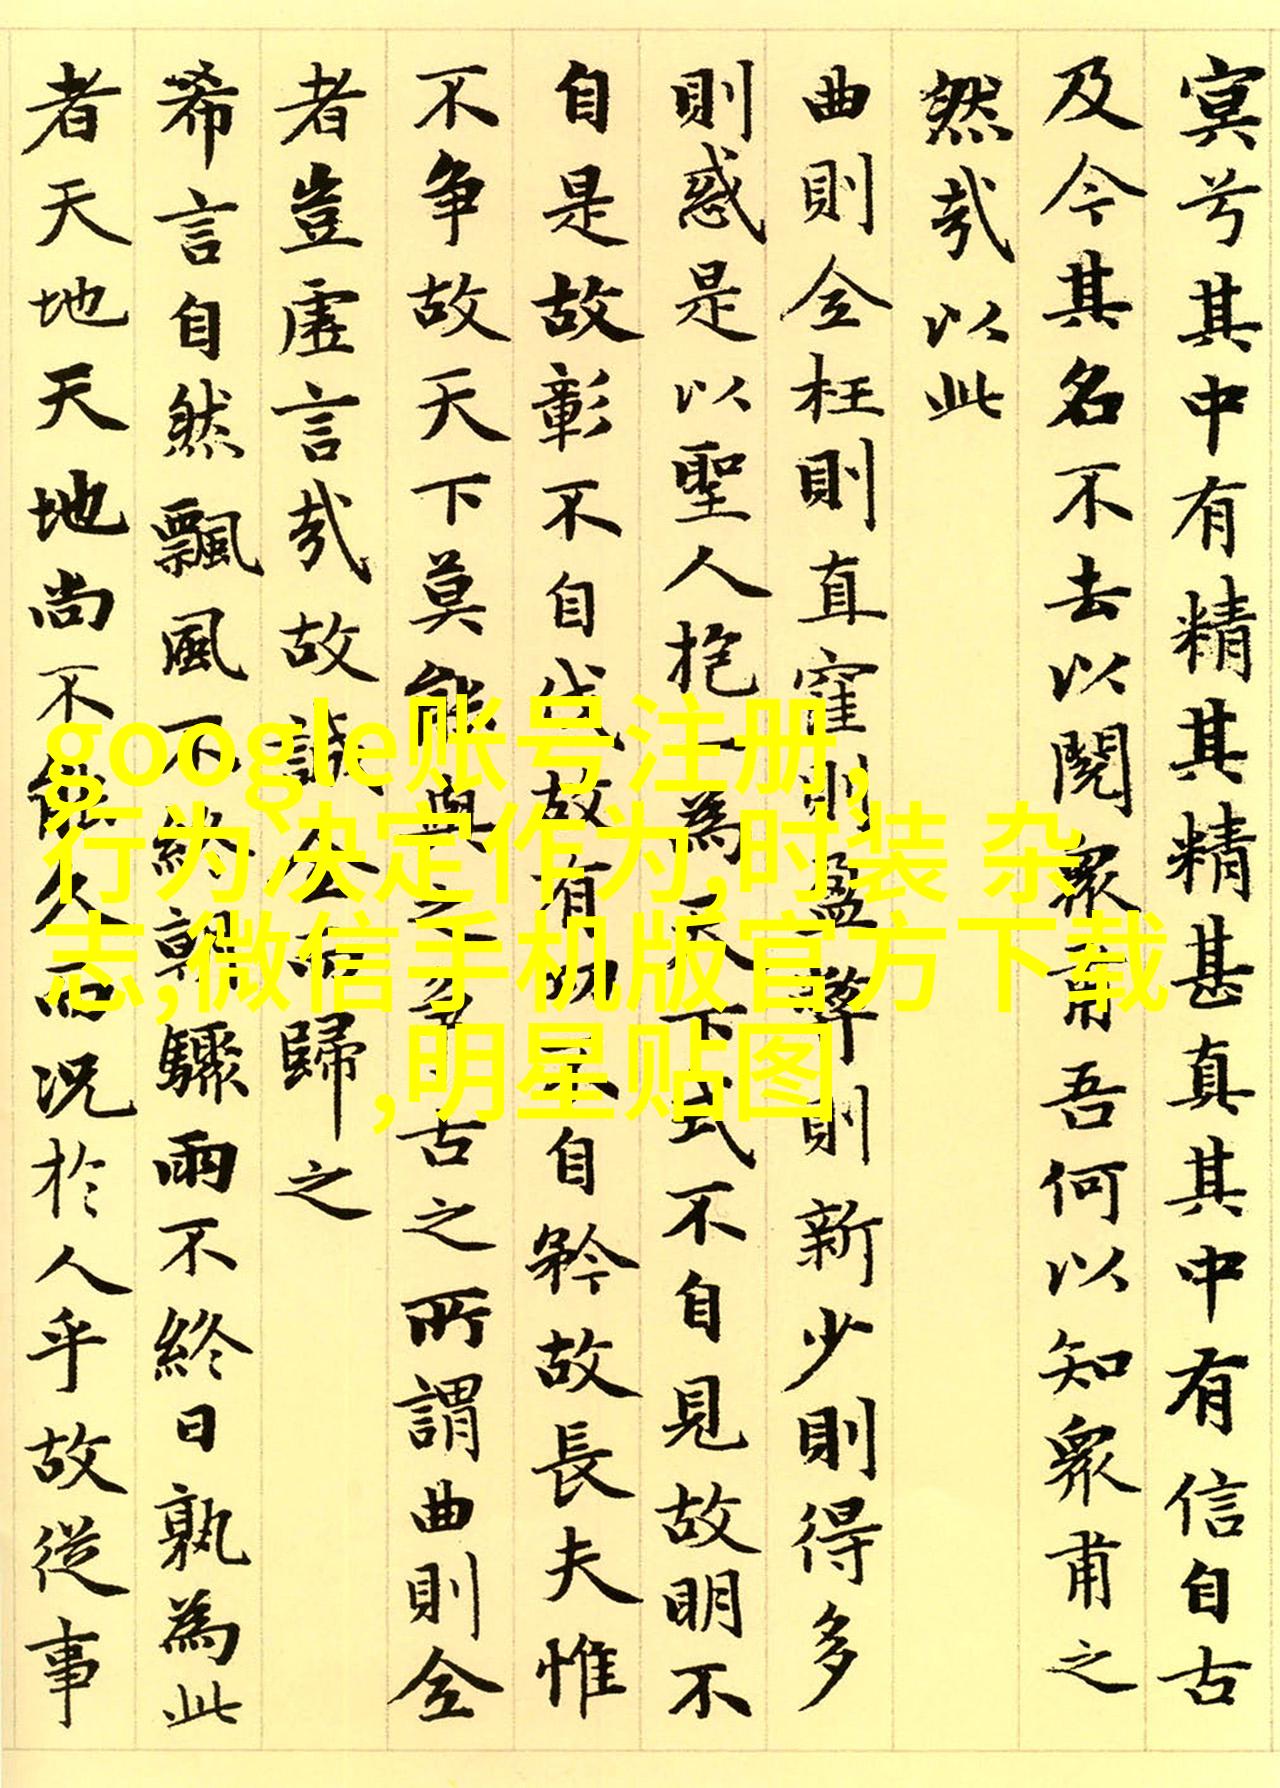 冥兮其中有精其精甚真其中有信自古
及今其名不去以閱眾甫吾何以知眾甫之
然哉以此
曲則全枉則直窪則盈弊則新少則得多
則惑是以聖人抱一為天下式不自見故明不
自是故彰不自伐故有功不自矜故長夫惟
不争故天下莫能與之争古之所謂曲則全
者豈虛言哉故誠全而歸之
希言自然飄風不終朝驟雨不終日孰為此
者天地天地尚不能久而況於人乎故從事
google账号注册,
行为决定作为,时装 杂
志,微信手机版官方下载
,明星贴图